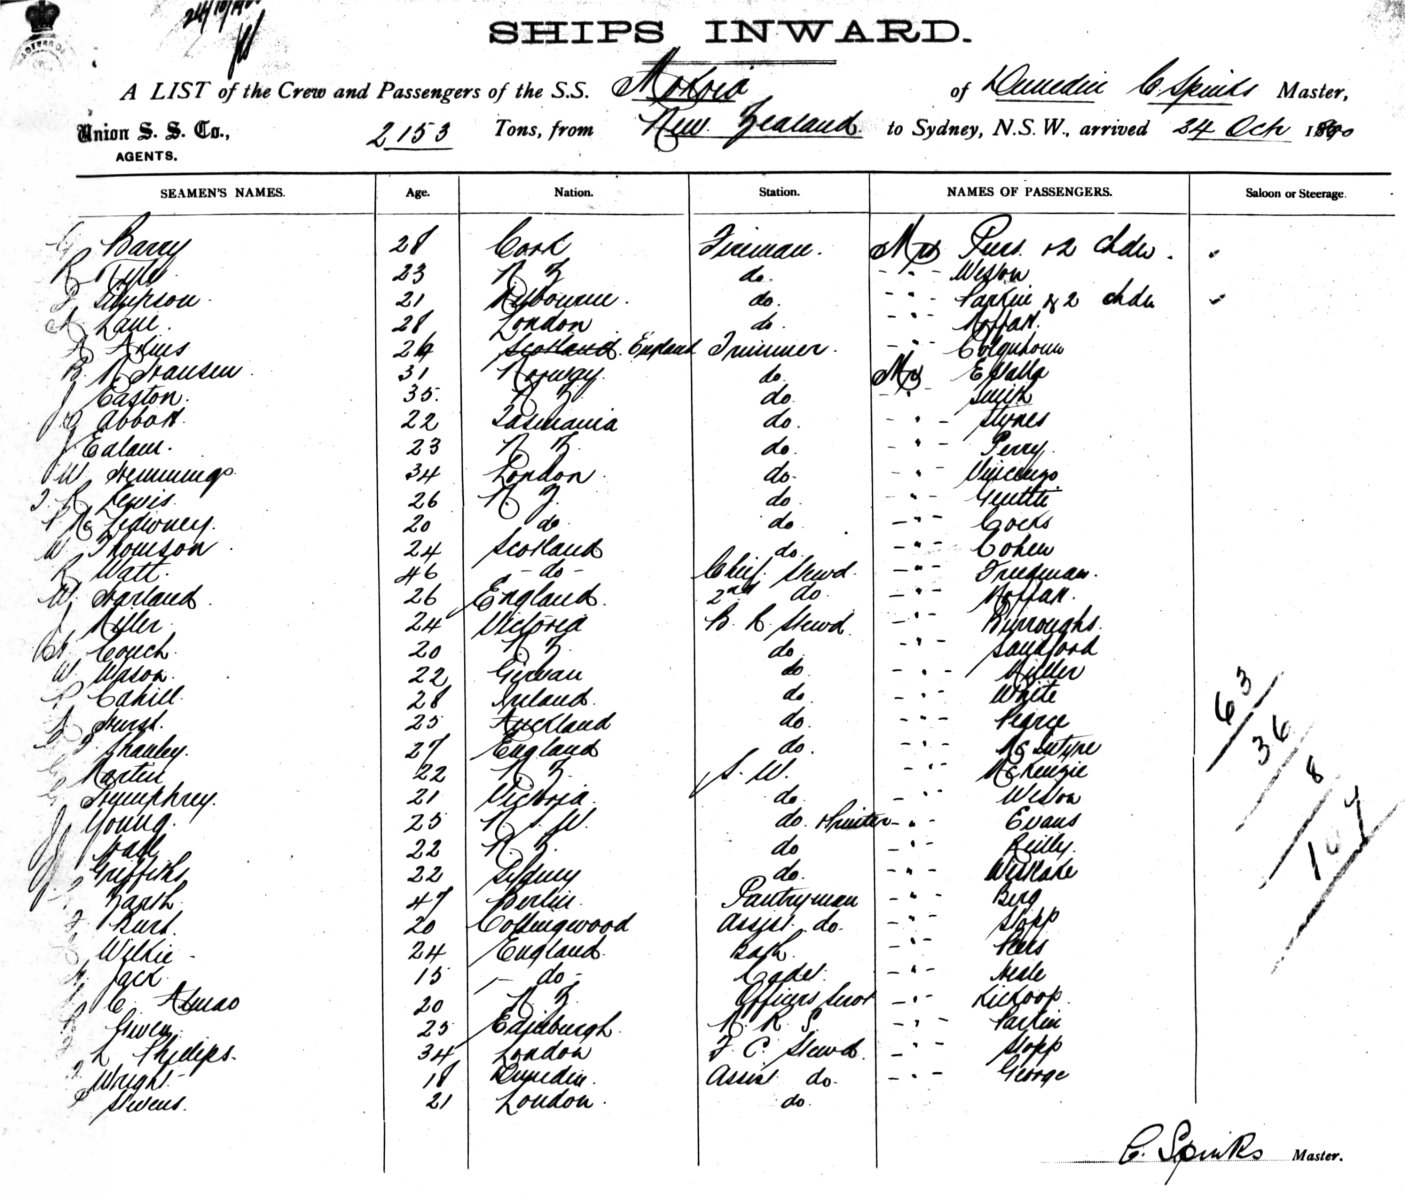 24/10/1900
SHIPS INWARD.
A LIST of the Crew and Passengers of the S.S. Mokoia of Dunedin C Spinks Master,
Union S. S. Co., 2153 Tons, from New Zealand to Sydney, N.S.W., arrived 24 Oct 1900
AGENTS.
SEAMEN'S NAMES. Age. Nation. Station. NAMES OF PASSENGERS. Saloon or Steerage.
Barry 28 Cork Fireman. Mrs & 2 chdn.
R 23 N Z do. - " - Weston
Simpson. 21 Melbourne. do. - " - Parkin & 2 chdn
Lane. 28 London do. - " - Moffatt.
A Akins 24 Scotland England Trimmer. - " - Colquhoun
N Hansen 31 Norway. do.
J Easton. 35. N Z do. - " - Smith
Abbott 22 Tasmania do. - " - Stynes
J Ealam. 23 N Z. do. - " - Perry
W Hemmings 34 London. do. - " -
R Lewis 26 N Z. do - " -
20 do do - " - Cocks
W Thomson 24 Scotland do. - " - Cohen
R Watt. 46 - do - Chief Stewd. - " - Friedman.
W Harland 26 England. 2nd do. - " - Moffatt.
J Miller 24 Victoria B R Stewd - " - Burroughs.
Couch 20 N Z. do - " - Sandford
W Mason 22 do - " - Miller
P Cahill 28 Ireland. do. - " - White
Hurst. 25 Auckland do. - " - Pearce
Shanley. 27 England do. - " - McIntyre
Martin 22 N Z. S. W. - " - McKenzie
Humphrey. 21 Victoria. do - " - Weston
J Young. 25 N S W. do. - " - Evans
J Hall 22 N. Z. do - " - Reilly.
J Griffiths 22 Sydney do. - " - Westlake
47 Berlin. Pantryman - " - Berg
Burt. 20 Collingwood Assist do. - " - Stopp
Wilkie 24 England. Bath. - " - Peers
Jack 15 - do - Cadet. - " -
C. 20 N Z. Officers Servt - " -
25 Edinburgh. - " - Parkin
L Phillips. 34 London F C. Stewd. - " - Stopp
Wright 18 Dunedin. Assist do. - " - George
Stevens. 21 London. do.
63
36
8
107
C. Spinks Master.